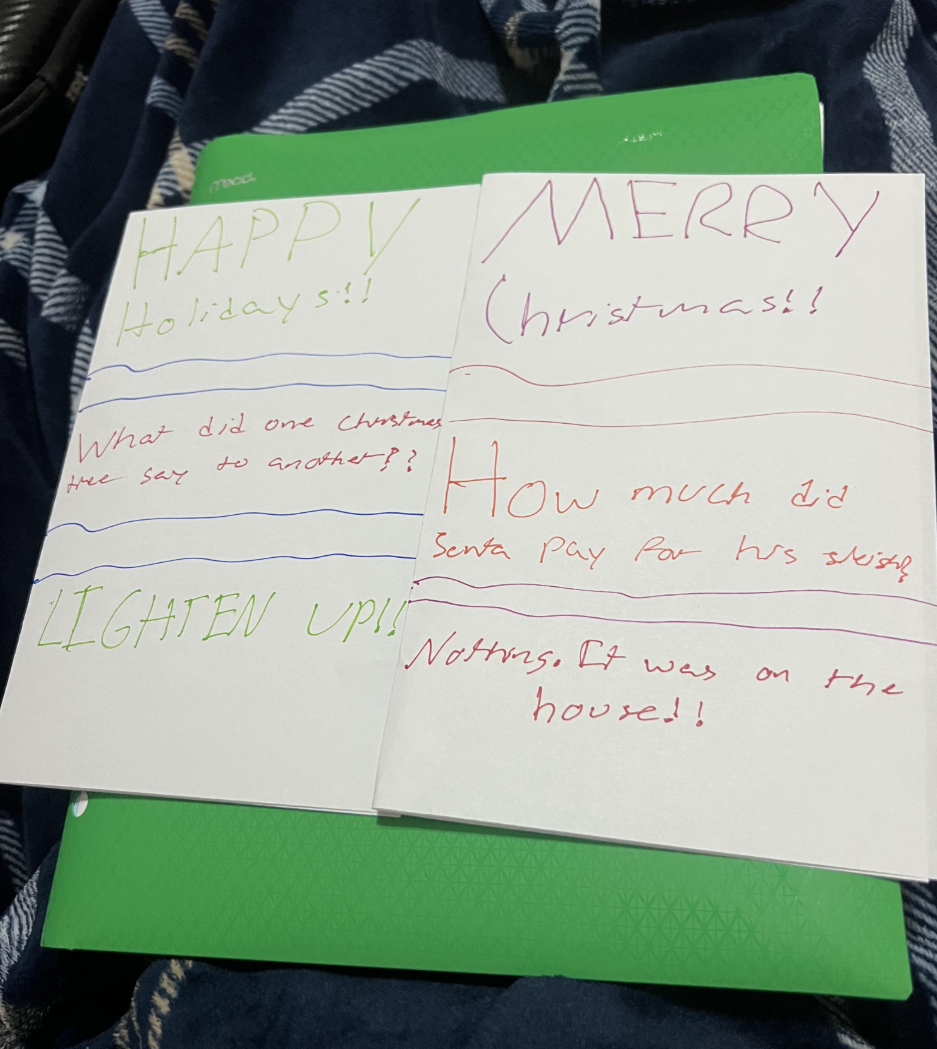 mead
HAPPY
Holidays!!
What did one Christmas
tree say to another??
LIGHTEN UP!!
MERRY
Christmas!!
How much did
Santa pay for his sleigh?
Nothing. It was on the
house!!